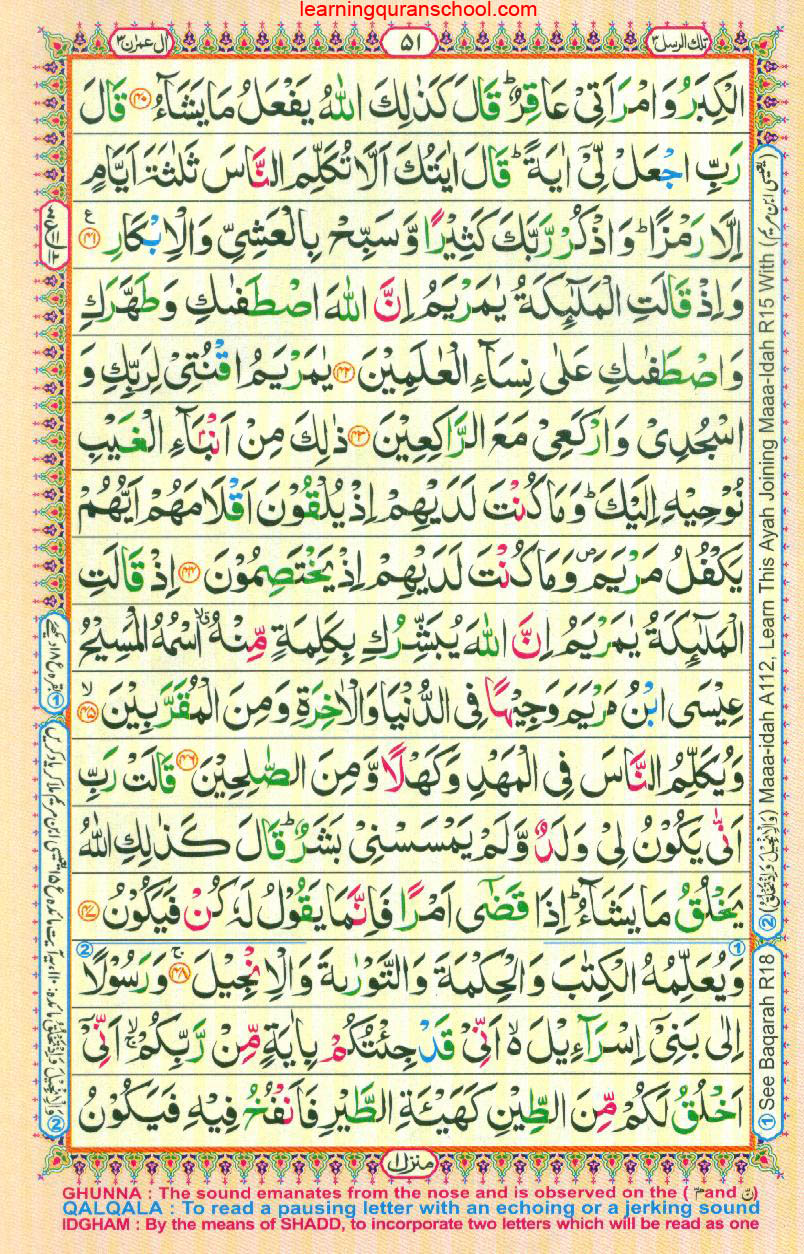 learningquranschool.com
تلك الرسل ٣
٥١
ال عمرٰن ٣
الْكِبَرُ وَامْرَاَتِیْ عَاقِرٌ ؕ قَالَ كَذٰلِكَ اللّٰهُ یَفْعَلُ مَا یَشَآءُ ۝۴۰ قَالَ
رَبِّ اجْعَلْ لِّیْۤ اٰیَةً ؕ قَالَ اٰیَتُكَ اَلَّا تُكَلِّمَ النَّاسَ ثَلٰثَةَ اَیَّامٍ
اِلَّا رَمْزًا ؕ وَاذْكُرْ رَّبَّكَ كَثِیْرًا وَّسَبِّحْ بِالْعَشِیِّ وَالْاِبْكَارِ ۝۴۱ ع
وَاِذْ قَالَتِ الْمَلٰٓىِٕكَةُ یٰمَرْیَمُ اِنَّ اللّٰهَ اصْطَفٰىكِ وَطَهَّرَكِ
وَاصْطَفٰىكِ عَلٰى نِسَآءِ الْعٰلَمِیْنَ ۝۴۲ یٰمَرْیَمُ اقْنُتِیْ لِرَبِّكِ وَ
اسْجُدِیْ وَارْكَعِیْ مَعَ الرّٰكِعِیْنَ ۝۴۳ ذٰلِكَ مِنْ اَنْۢبَآءِ الْغَیْبِ
نُوْحِیْهِ اِلَیْكَ ؕ وَمَا كُنْتَ لَدَیْهِمْ اِذْ یُلْقُوْنَ اَقْلَامَهُمْ اَیُّهُمْ
یَكْفُلُ مَرْیَمَ ۪ وَمَا كُنْتَ لَدَیْهِمْ اِذْ یَخْتَصِمُوْنَ ۝۴۴ اِذْ قَالَتِ
الْمَلٰٓىِٕكَةُ یٰمَرْیَمُ اِنَّ اللّٰهَ یُبَشِّرُكِ بِكَلِمَةٍ مِّنْهُ ۖۗ اسْمُهُ الْمَسِیْحُ
عِیْسَى ابْنُ مَرْیَمَ وَجِیْهًا فِی الدُّنْیَا وَالْاٰخِرَةِ وَمِنَ الْمُقَرَّبِیْنَ ۙ۝۴۵
وَیُكَلِّمُ النَّاسَ فِی الْمَهْدِ وَكَهْلًا وَّمِنَ الصّٰلِحِیْنَ ۝۴۶ قَالَتْ رَبِّ
اَنّٰى یَكُوْنُ لِیْ وَلَدٌ وَّلَمْ یَمْسَسْنِیْ بَشَرٌ ؕ قَالَ كَذٰلِكِ اللّٰهُ
یَخْلُقُ مَا یَشَآءُ ؕ اِذَا قَضٰۤى اَمْرًا فَاِنَّمَا یَقُوْلُ لَهٗ كُنْ فَیَكُوْنُ ۝۴۷
وَیُعَلِّمُهُ الْكِتٰبَ وَالْحِكْمَةَ وَالتَّوْرٰىةَ وَالْاِنْجِیْلَ ۚ۝۴۸ وَرَسُوْلًا
اِلٰى بَنِیْۤ اِسْرَآءِیْلَ ۙ۬ اَنِّیْ قَدْ جِئْتُكُمْ بِاٰیَةٍ مِّنْ رَّبِّكُمْ ۙۚ اَنِّیْۤ
اَخْلُقُ لَكُمْ مِّنَ الطِّیْنِ كَهَیْـَٔةِ الطَّیْرِ فَاَنْفُخُ فِیْهِ فَیَكُوْنُ
منزل ۱
① See Baqarah R18
② (وَالْاِنْجِيْلَ وَاِذْ تَخْلُقُ) Maaa-idah A112, Learn This Ayah Joining Maaa-Idah R15 With (يٰعيسى ابن مريم)
GHUNNA : The sound emanates from the nose and is observed on the ( مّ and نّ)
QALQALA : To read a pausing letter with an echoing or a jerking sound
IDGHAM : By the means of SHADD, to incorporate two letters which will be read as one